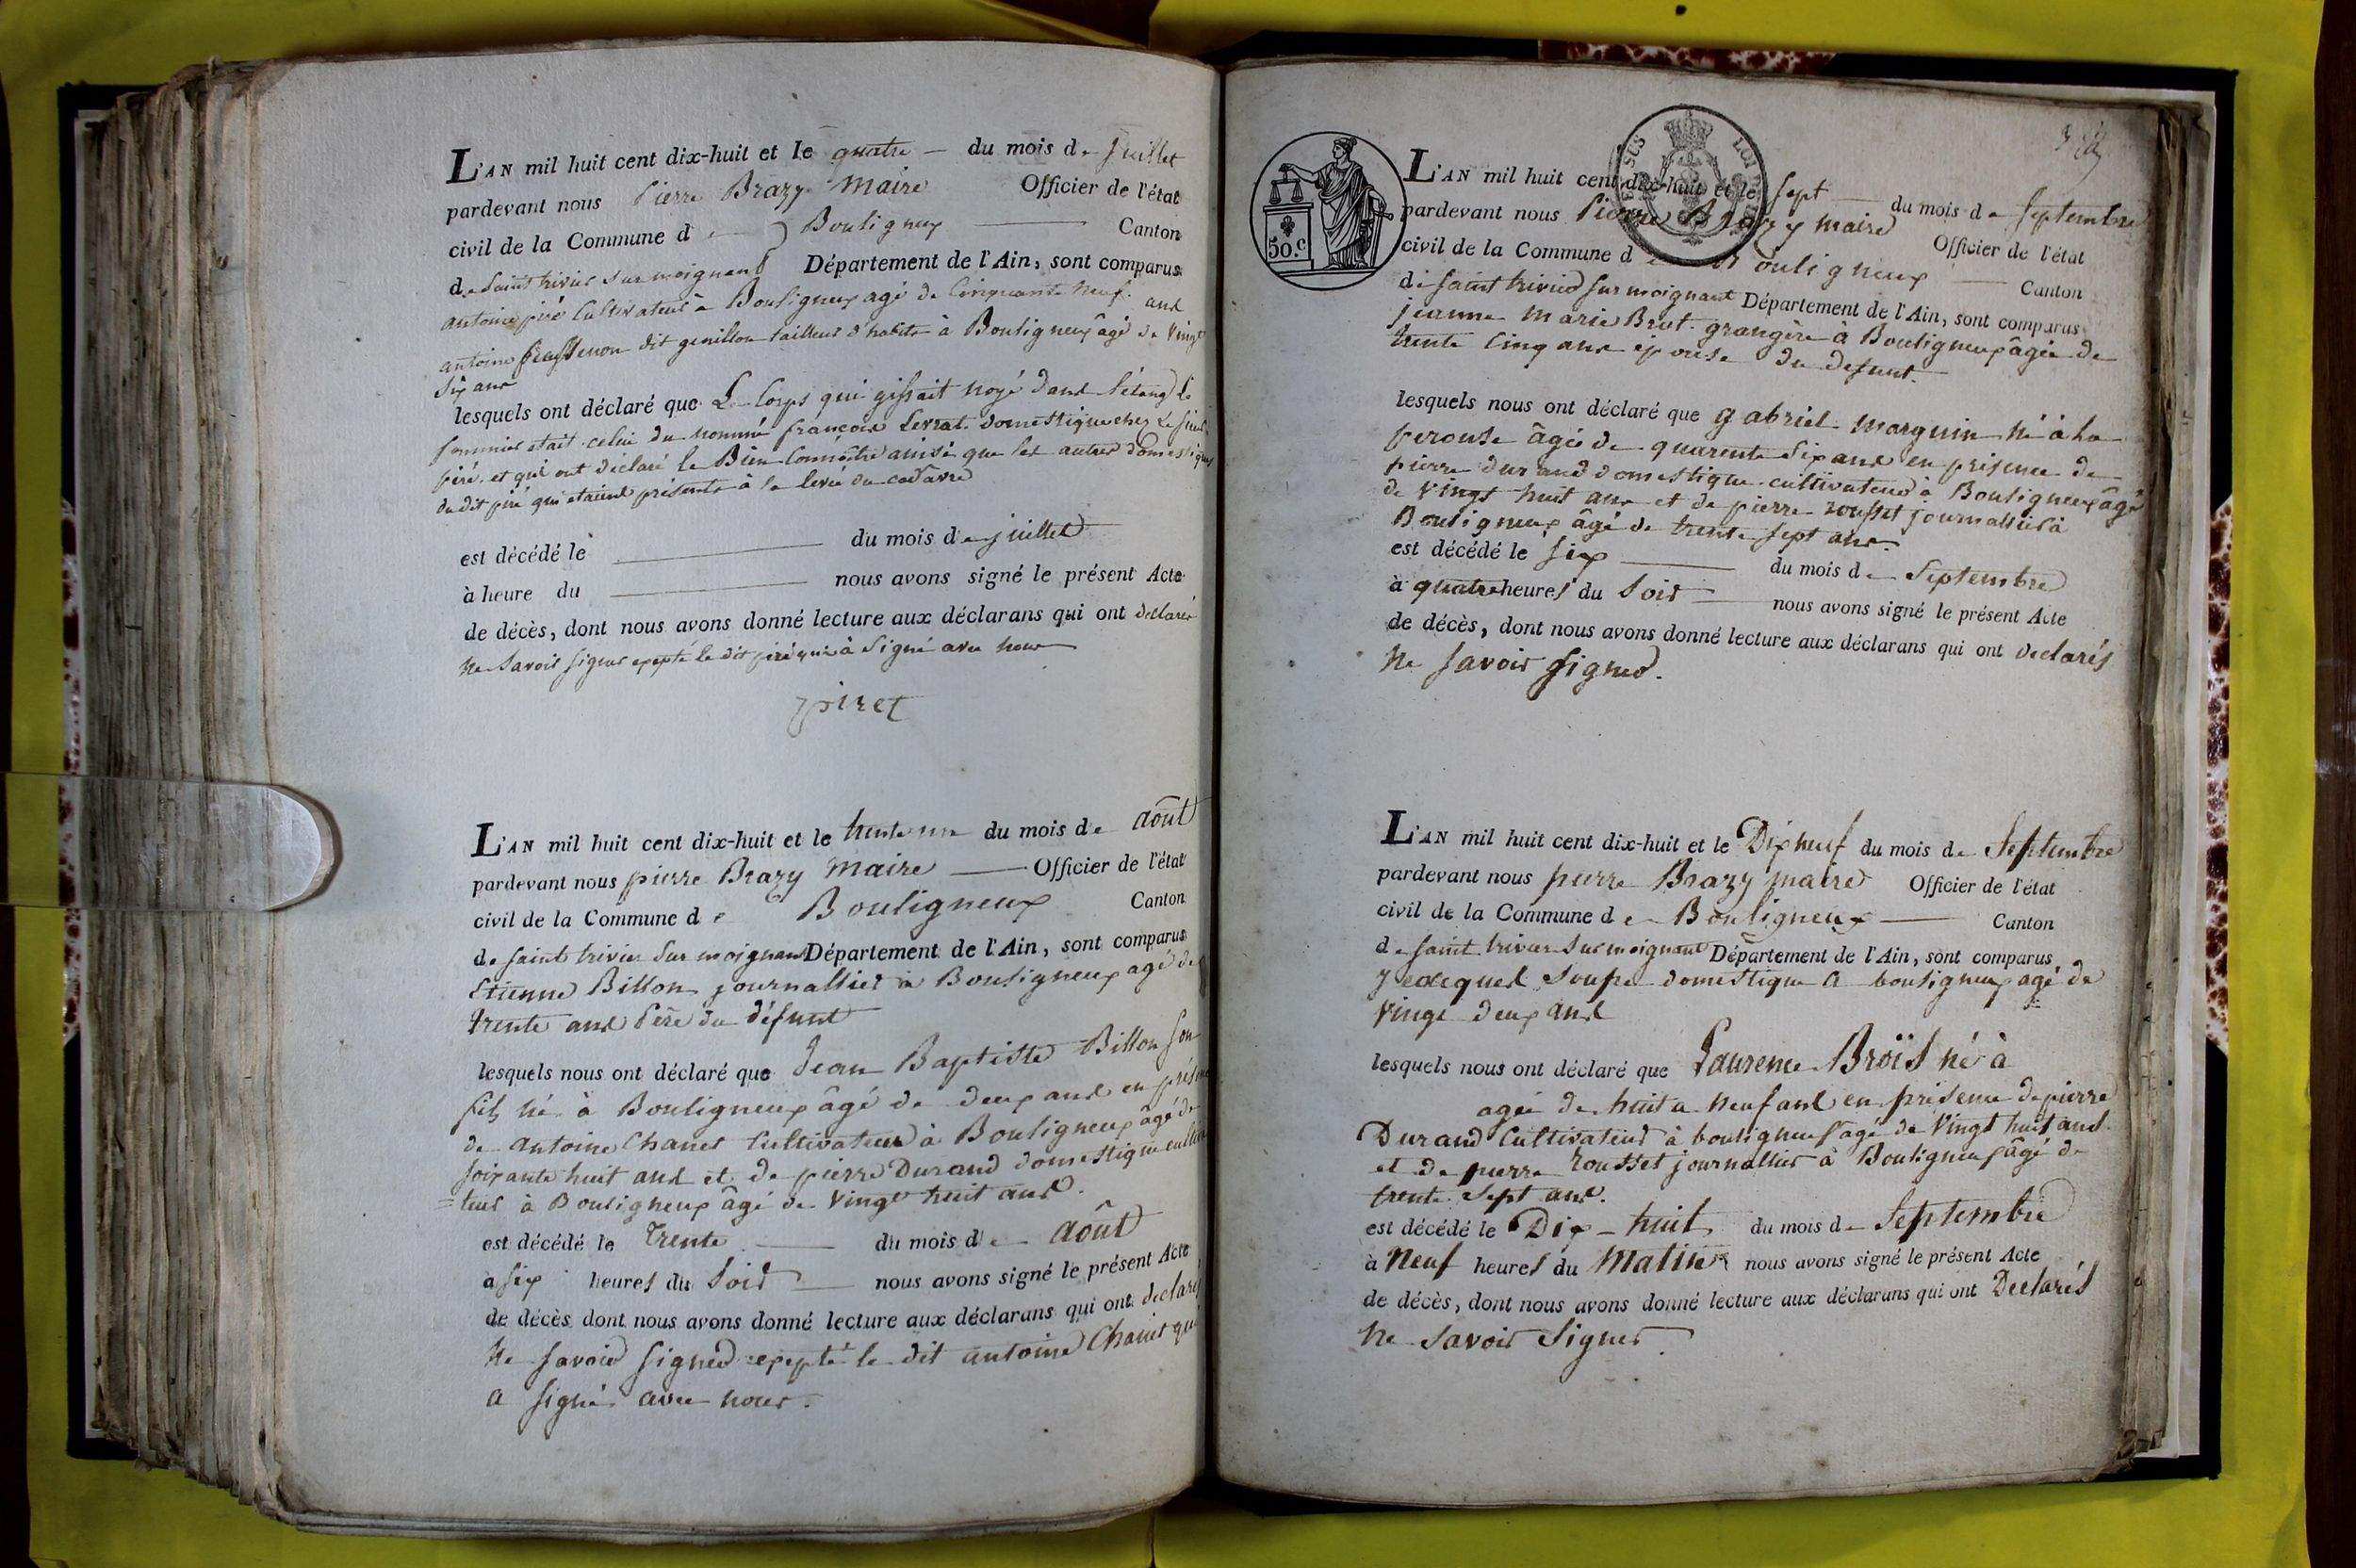 L'AN mil huit cent dix-huit et le quatre du mois de juillet
pardevant nous Pierre Brazy Maire Officier de l'état
civil de la Commune de Bouligneux Canton
de Saint trivier sur moignans Département de l'Ain, sont comparus
antoine piré Cultivateur à Bouligneux agé de Cinquante neuf ans
antoine dit genillon tailleur d'habits à Bouligneux âgé de vingt
six ans
lesquels ont déclaré que Le Corps qui gissait noyé dans l'étang le
sommier etait celui du nommé françois Levrat domestique chez Le sieur
piré et qui ont déclaré le Bien Connaître ainsi que les autres domestiques
du dit piré qui etaient présents à la levée du cadavre
est décédé le du mois de juillet
à heure du nous avons signé le présent Acte
de décès, dont nous avons donné lecture aux déclarans qui ont declarés
ne Savoir signer exepté le dit piré qui à Signé avec nous
piret
L'AN mil huit cent dix-huit et le trente un du mois de août
pardevant nous pierre Brazy Maire Officier de l'état
civil de la Commune de Bouligneux Canton
de saint trivier sur moignans Département de l'Ain, sont comparus
Etienne Billon journallier à Bouligneux agé de
trente ans Père du défunt
lesquels nous ont déclaré que Jean Baptiste Billon son
fils né à Bouligneux âgé de deux ans en présence
de antoine Chanet Cultivateur à Bouligneux âgé de
soixante huit ans et de pierre Durand domestique cultiva
=teur à Bouligneux âgé de vingt huit ans.
est décédé le Trente du mois de Août
à six heures du Soir nous avons signé le présent Acte
de décès dont nous avons donné lecture aux déclarans qui ont declarés
Ne savoir signer exepté le dit antoine Chanet qui
a signé avec nous.
50.C
L'AN mil huit cent dix-huit et le sept du mois de septembre
pardevant nous Pierre Brazy maire Officier de l'état
civil de la Commune de Bouligneux Canton
de saint trivier sur moignant Département de l'Ain, sont comparus
jeanne Marie Brut grangère à Bouligneux âgée de
trente Cinq ans épouse du defunt.
lesquels nous ont déclaré que gabriel Marguin né à La
perouse âgée de quarente Six ans en présence de
pierre durand domestique cultivateur à Bouligneux âgé
de vingt huit ans et de pierre rousset journallier à
Bouligneux âgé de trente sept ans.
est décédé le six du mois de Septembre
à quatre heures du Soir nous avons signé le présent Acte
de décès, dont nous avons donné lecture aux déclarans qui ont declarés
Ne savoir signer.
L'AN mil huit cent dix-huit et le Dix neuf du mois de Septembre
pardevant nous pierre Brazy maire Officier de l'état
civil de la Commune de Bouligneux Canton
de saint trivier sur moignant Département de l'Ain, sont comparus
Soupe domestique à bouligneux agé de
vingt deux ans
lesquels nous ont déclaré que Laurence Broïs né à
agée de huit a neuf ans en présence de pierre
Durand Cultivateur à bouligneux agé de vingt huit ans
et de pierre rousset journallier à Bouligneux âgé de
trente sept ans.
est décédé le Dix-huit du mois de Septembre
à Neuf heures du Matin nous avons signé le présent Acte
de décès, dont nous avons donné lecture aux déclarans qui ont Declarés
Ne Savoir Signer